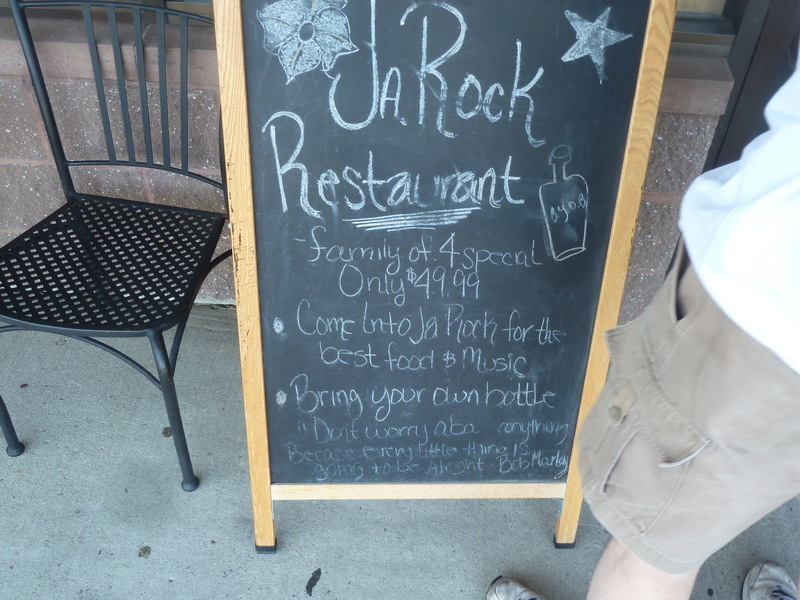 JaRock
Restaurant
B.Y.O.B
-family of 4 special
Only $49.99
Come Into Ja Rock for the
best food & Music
Bring your own bottle
"Don't worry aba anything
Becase every little thing is
going to be Alright. Bob Marley